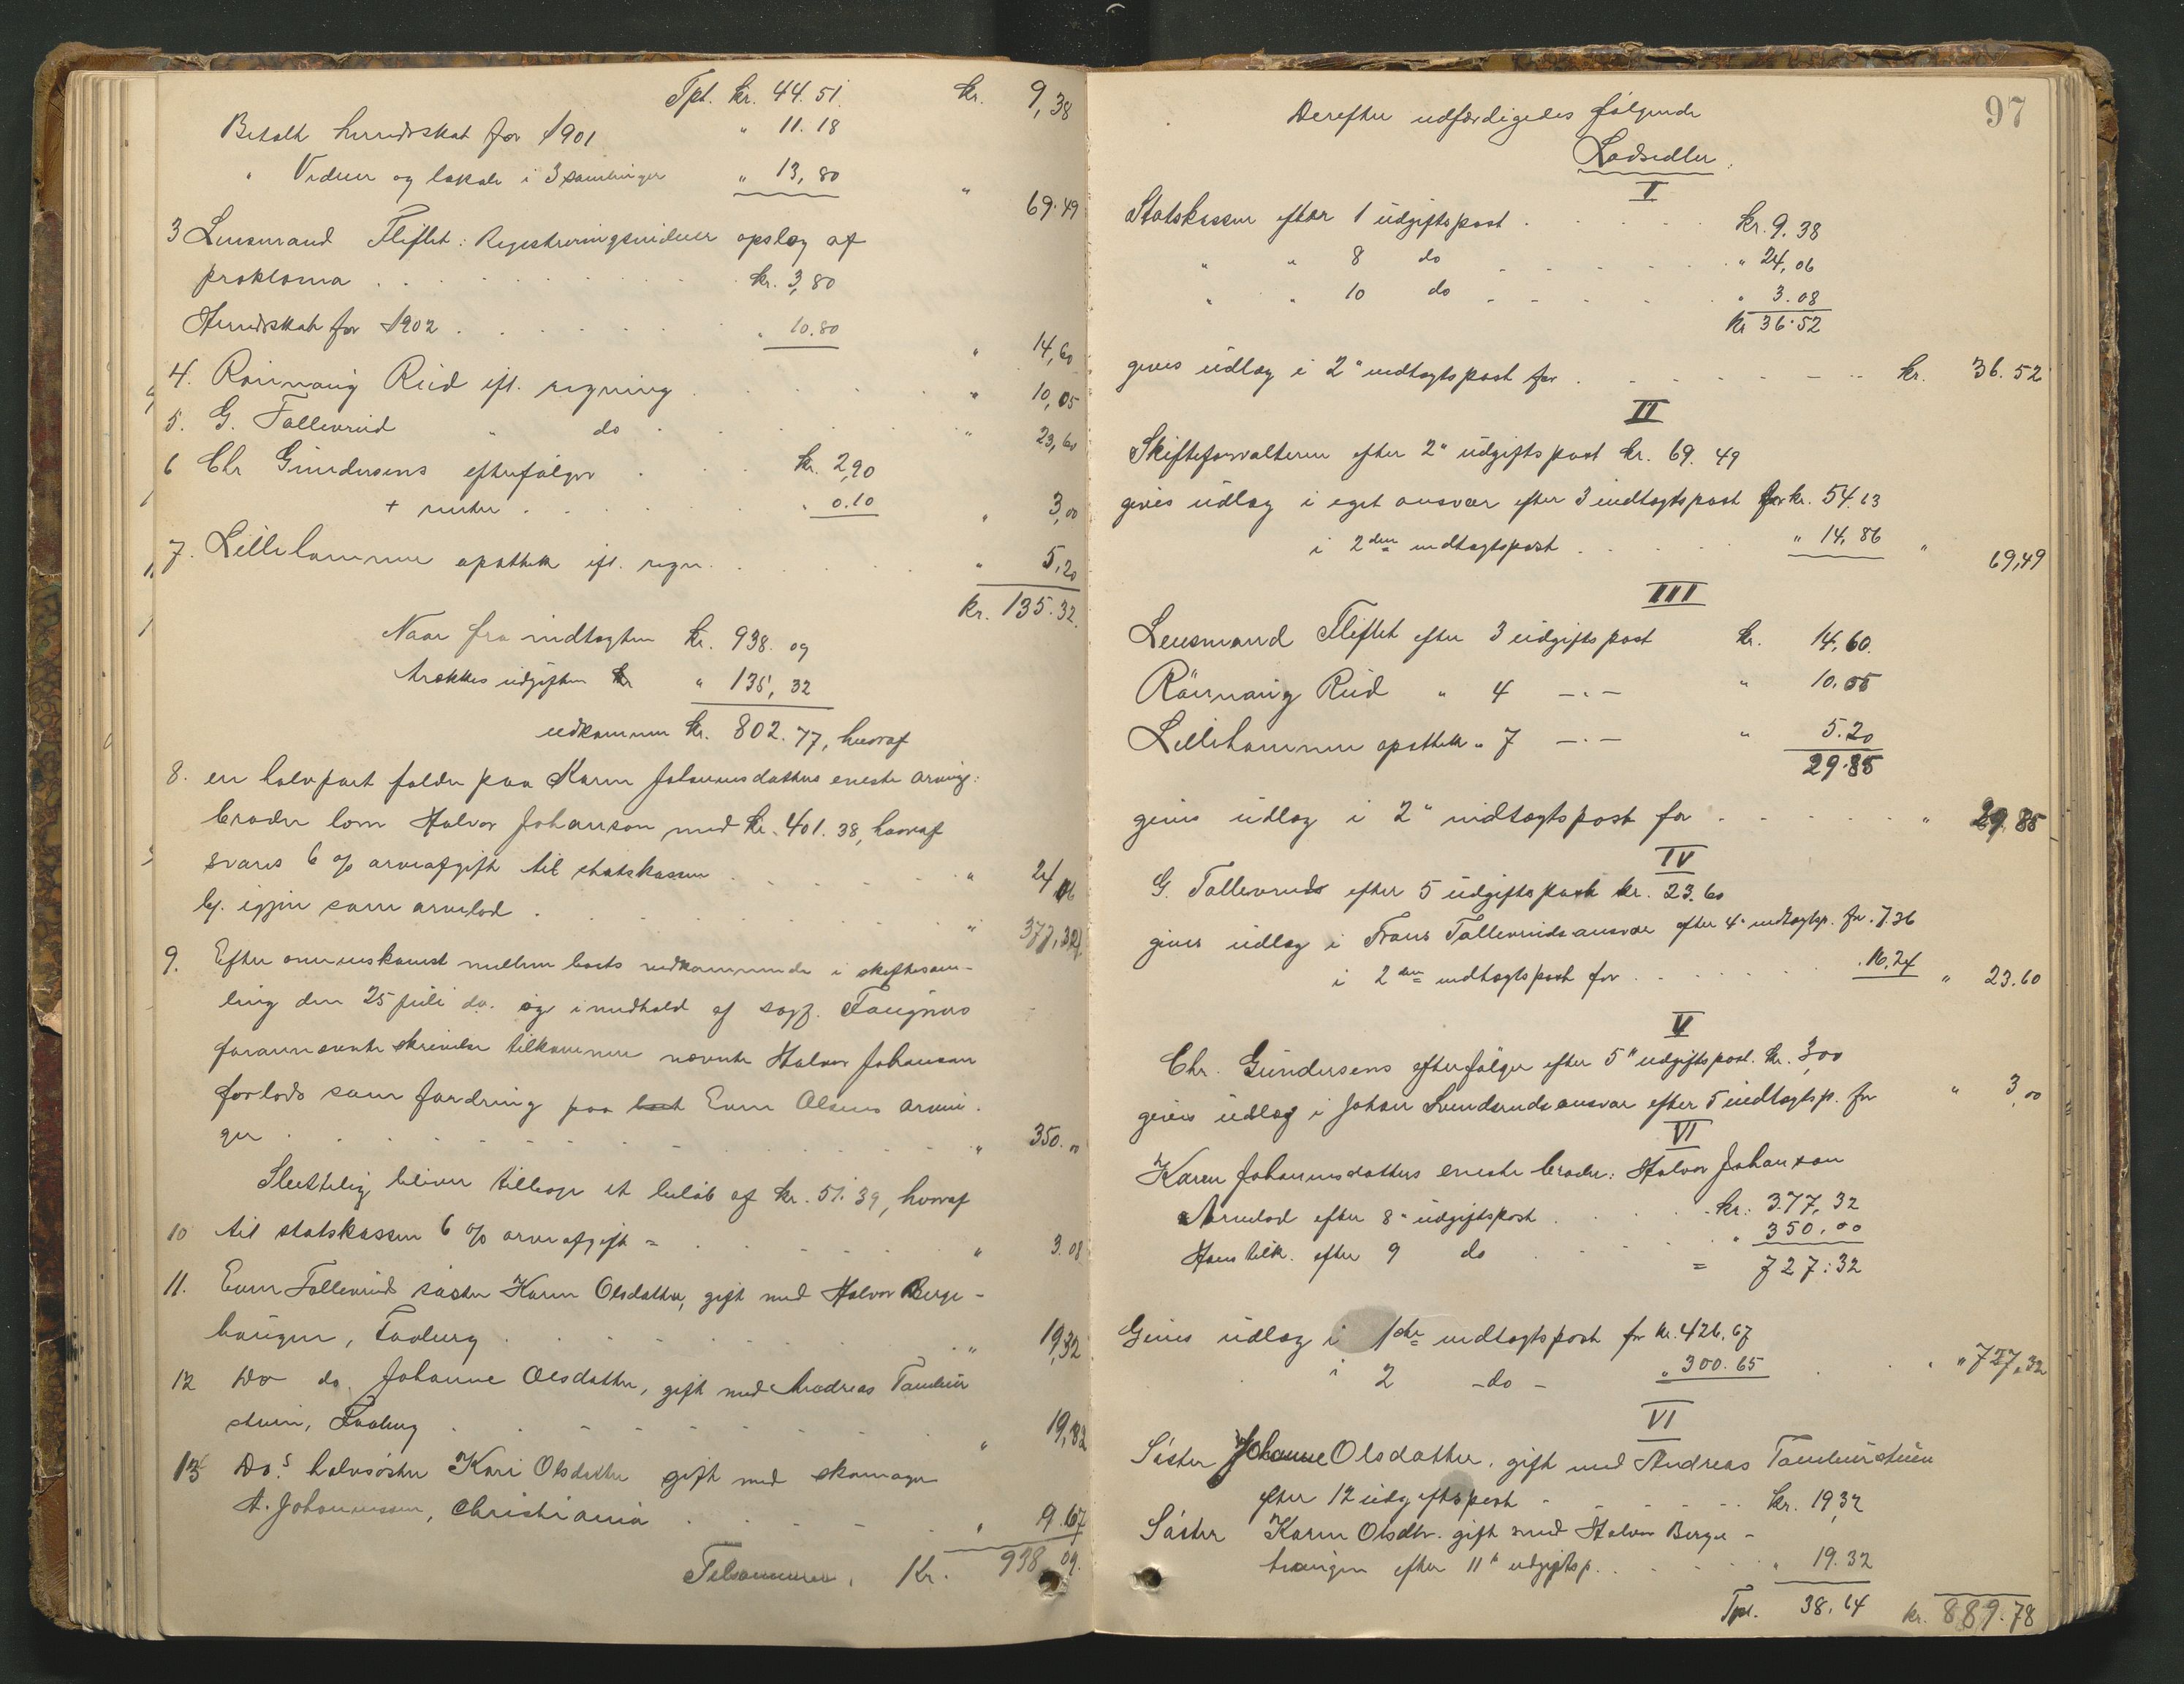 Tpt. kr. 44.51. kr. 9,38
Betalt herredsskat for 1901 " 11.18
" Vidner og lokale i 3 samlinger " 13,80 " 69.49
3 Lensmand Fliflet: Registreringsvidner opslag af
proklama . . . . . . kr. 3,80
Herredsskat for 1902 . . . . . " 10.80 " 14,60
4. Rönnaug Rud ifl. regning . . . . " 10,05
5. G. Tollevrud " do . . . . . " 23,60
6 Chr Gundersens efterfølger . . . kr. 2,90
+ renter . . . . . " 0.10 " 3,00
7. Lillehammer apothek ifl. regn. . . . . " 5,20
kr. 135.32.
Naar fra indtægten kr. 938.09
trækkes udgiften kr " 135,32
udkommer kr. 802.77, hvoraf
8. en halvpart falder paa Karen Johannesdatters eneste arving:
broder lom Halvor Johanson med kr. 401.38, hvoraf
svares 6 % arveafgift til statskassen . . . . " 24,06
hj. igjen som arvelod . . . . . " 377,32
9. Efter overenskomst mellem boets vedkommende i skiftesam-
ling den 25 juli da. og i medhold af sagf. Faugners
forannævnte skrivelse tilkommer nævnte Halvor Johansen
forlods som fordring paa boet Even Olsens arvin-
ger . . . . . . . " 350.00
Sluttelig bliver tilbage et beløb af kr. 51.39, hvoraf
10 til statskassen 6 % arveafgift = . . . . . " 3.08
11. Even Tollevruds søster Karen Olsdatter, gift med Halvor Berge-
haugen, Faaberg . . . . . . " 19,32
12 Do do Johanne Olsdatter, gift med Andreas Tambur
stuen, Faaberg . . . . . . " 19,32
13 Do.s halvsøster Kari Olsdatter gift med skomager
A. Johannessen, Christiania . . . . " 9.67
Tilsammen, Kr. 938.09.
97
Derefter udfærdigedes følgende
Lodsedler.
I
Statskassen efter 1 udgiftspost . . . . . kr. 9.38
" " 8 do . . . . . " 24,06
" " 10 do . . . . . " 3.08
kr 36.52
gives udlæg i 2" indtægtspost for . . . . . kr. 36.52
II
Skifteforvalteren efter 2" udgiftspost kr. 69.49
gives udlæg i eget ansvar efter 3 indtægtspost for kr. 54.63
i 2den indtægtspost . . . . " 14,86 " 69,49
III
Lensmand Fliflet efter 3 udgiftspost kr. 14,60.
Rönnaug Rud " 4 -"- " 10.05
Lillehammer apothek " 7 -"- " 5.20
29.85
gives udlæg i 2" indtægtspost for . . . . . " 29,85
IV
G. Tollevrud efter 5 udgiftspost kr. 23.60
gives udlæg i Frans Tollevruds ansvar efter 4" indtægtsp. for 7.36
i 2den indtægtspost for . . . . . 16,24 " 23.60
V
Chr. Gundersens efterfølger efter 5" udgiftspost. kr. 3,00
gives udlæg i Johan Svendsruds ansvar efter 5 indtægtsp. for " 3,00
VI
Karen Johannesdatters eneste broder: Halvor Johanson
Arvelod efter 8" udgiftspost . . . . kr. 377,32
Hans tilk. efter 9 do . . . . " 350.00
= 727:32
Gives udlæg i 1ste indtægtspost for kr. 426,67
i 2 -do- " 300.65 . . " 727,32
VI
Søster Johanne Olsdatter, gift med Andreas Tamburstuen
efter 12 udgiftspost - . . . . kr. 19,32
Søster Karen Olsdtr. gift med Halvor Berge-
haugen efter 11" udgiftsp. . . . . " 19.32
Tpt. 38,64 kr. 889.78